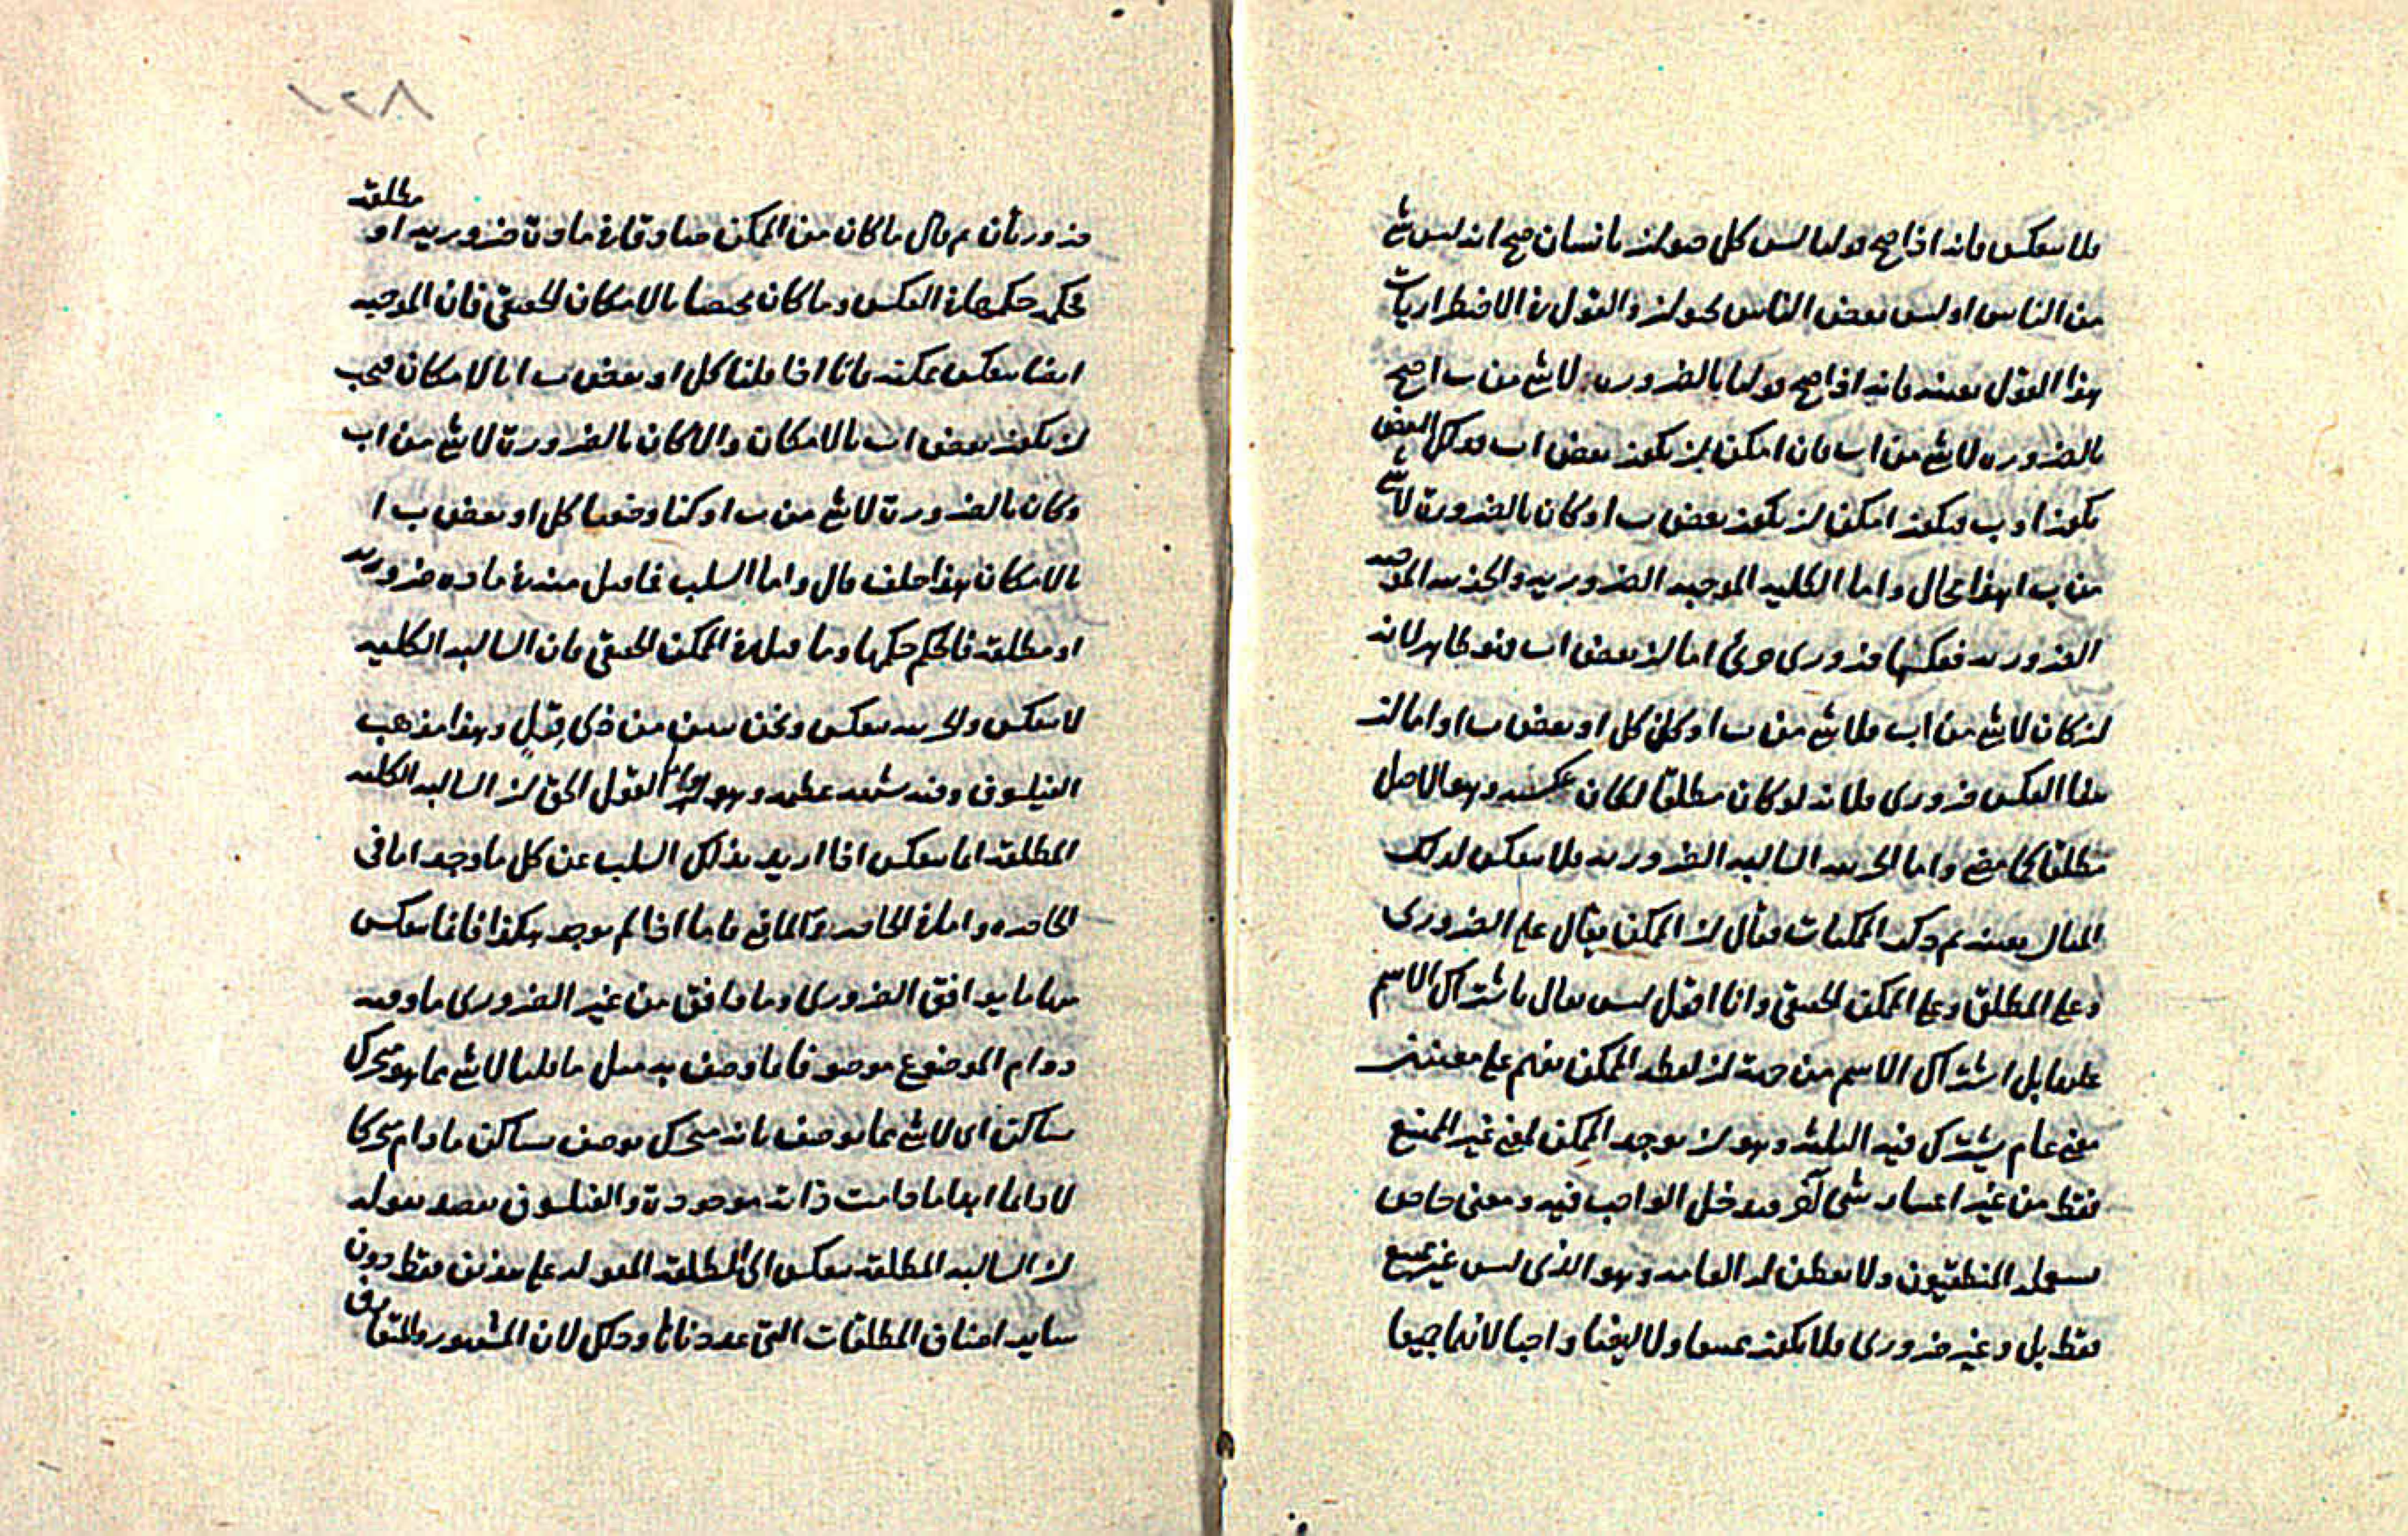 فلا ينعكس فانه اذا صح قولنا ليس كل حيوان بانسان صح انه ليس شئ
من الناس او ليس بعض الناس بحيوان والقول في الاضطراريات
هذا القول بعينه فانه اذا صح قولنا بالضرورة لا شئ من ب ا صح
بالضرورة لا شئ من ا ب فان امكن ان يكون بعض ا ب فذلك البعض
يكون ا و ب فيكون امكن ان يكون بعض ب ا وكان بالضرورة لا شئ
من ب ا هذا محال واما الكلية الموجبة الضرورية والجزئية الموجبة
الضرورية فعكسها ضروري جزئ اما ان بعض ا ب فهو ظاهر لانه
ان كان لا شئ من ا ب فلا شئ من ب ا وكان كل او بعض ب ا واما ان
هذا العكس ضروري فلانه لو كان مطلقا لكان عكسه وهو الاصل
مطلقا كما مضى واما الجزئية السالبة الضرورية فلا ينعكس لذلك
المثال بعينه ثم ذكر الممكنات فقال ان الممكن يقال على الضروري
وعلى المطلق وعلى الممكن الحقيقي وانا اقول ليس يقال باشتراك الاسم
عليها بل اشتراك الاسم من جهة ان لفظة الممكن يفهم على معنيين
معنى عام يشترك فيه الثلثة وهو ان يوجد الممكن لمعنى غير الممتنع
فقط من غير اعتبار شئ آخر فيدخل الواجب فيه ومعنى خاص
يستعمله المنطقيون ولا يفطن له العامة وهو الذي ليس غير ممتنع
فقط بل وغير ضروري فلا يكون ممتنعا ولا ايضا واجبا لانهما جميعا
١٢٨
ضروريان ثم قال ما كان من الممكن صادقا في مادة ضرورية او مطلقة
فحكمه حكمها في العكس وما كان مختصا بالامكان الحقيقي فان الموجبة
ايضا ينعكس ممكنة فانا اذا قلنا كل او بعض ب ا بالامكان فيجب
ان يكون بعض ا ب بالامكان والا كان بالضرورة لا شئ من ا ب
وكان بالضرورة لا شئ من ب ا وكنا وضعنا كل او بعض ب ا
بالامكان هذا خلف قال واما السلب فما قيل منه في مادة ضرورية
او مطلقة فالحكم حكمها وما قيل في الممكن الحقيقي فان السالبة الكلية
لا ينعكس والجزئية ينعكس ونحن نبين من ذي قبل وهذا مذهب
الفيلسوف وفيه شبهة عظيمة وهو القول الحق ان السالبة الكلية
المطلقة انما ينعكس اذا اريد بذلك السلب عن كل ما وجد اما في
الحاضر واما في الحاضر والماضي فاما اذا لم يوجد هكذا فانما ينعكس
منها ما يوافق الضروري وما وافق من غير الضروري ما وقته
دوام الموضوع موصوفا بما وصف به مثل ما قلنا لا شئ مما هو متحرك
ساكن اى لا شئ مما يوصف بانه متحرك يوصف بساكن ما دام متحركا
لا دائما ابدا ما دامت ذاته موجودة والفيلسوف يقصد بقوله
ان السالبة المطلقة ينعكس الى المطلقة المقولة على هذين فقط دون
ساير اصناف المطلقات التي عددناها وذلك لان المشهور والمتعارف